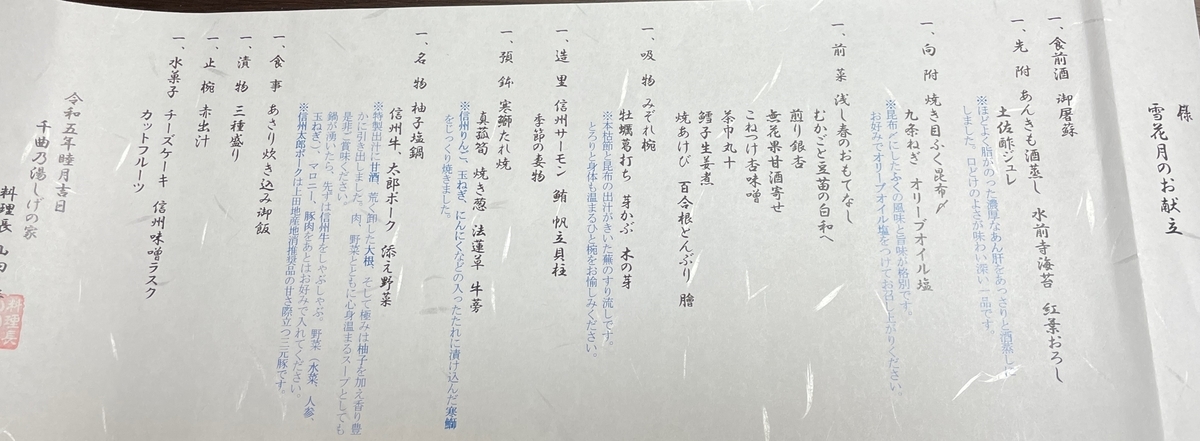 様
雪花月のお献立
一、食前酒 御屠蘇
一、先附 あんきも酒蒸し 水前寺海苔 紅葉おろし
土佐酢ジュレ
※ほどよく脂がのった濃厚なあん肝をあっさりと酒蒸しに
しました。口どけのよさが味わい深い一品です。
一、向附 焼き目ふく昆布〆
九条ねぎ オリーブオイル塩
※昆布〆にしたふくの風味と旨味が格別です。
お好みでオリーブオイル塩をつけてお召し上がりください。
一、前菜 浅し春のおもてなし
むかごと豆苗の白和へ
煎り銀杏
無花果甘酒寄せ
こねつけ杏味噌
茶巾丸十
鱈子生姜煮
焼あけび 百合根とんぶり 膾
一、吸物 みぞれ椀
牡蠣葛打ち 芽かぶ 木の芽
※本枯節と昆布の出汁がきいた蕪のすり流しです。
とろりと身体も温まるひと椀をお愉しみください。
一、造里 信州サーモン 鮪 帆立貝柱
季節の妻物
一、預鉢 寒鰤たれ焼
真菰筍 焼き葱 法蓮草 牛蒡
※信州りんご、玉ねぎ、にんにくなどの入ったたれに漬け込んだ寒鰤
をじっくり焼きました。
一、名物 柚子塩鍋
信州牛、太郎ポーク 添え野菜
※特製出汁に甘酒、荒く卸した大根、そして極みは柚子を加え香り豊
かに引き出しました。肉、野菜とともに心身温まるスープとしても
是非ご賞味ください。
鍋が沸いたら、先ずは信州牛をしゃぶしゃぶ。野菜（水菜、人参、
玉ねぎ）、マロニー、豚肉をあとはお好みで入れてください。
※信州太郎ポークは上田地産地消推奨品の甘さ際立つ三元豚です。
一、食事 あさり炊き込み御飯
一、漬物 三種盛り
一、止椀 赤出汁
一、水菓子 チーズケーキ 信州味噌ラスク
カットフルーツ
令和五年睦月吉日
千曲乃湯しげの家
料理長
料理長